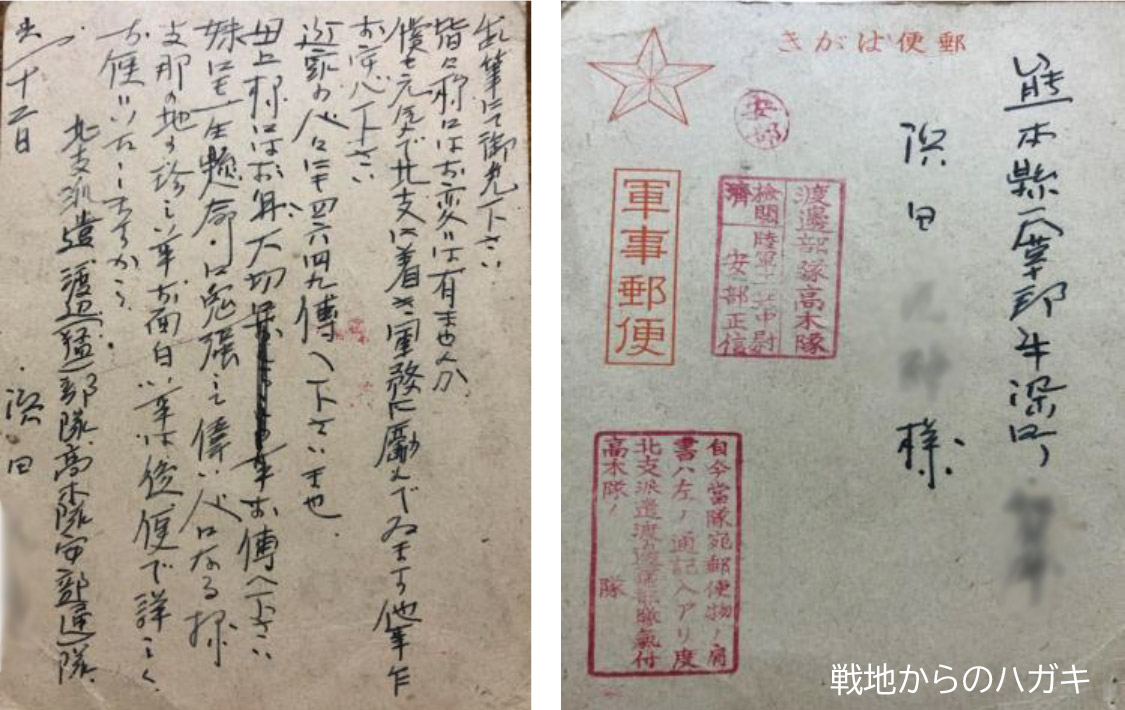 乱筆にて御免下さい
皆々様にはお変りは有ませんか
僕も元気で北支に着き軍務に励んでゐます他事乍
お安心下さい
近家の人々にも四六四九傳へ下さいませ
母上様にはお身大切に 事お傳へ下さい
妹にも一生懸命に勉強し偉い人になる様
支那の地の珍し事お面白い事は後便で詳しく
お便りいたしますから
北支派遣渡辺(猛)部隊高木隊安部通隊
浜田
六/十二日
郵便はがき
安部
軍事郵便
渡邊部隊高木隊
検閲濟
陸軍 中尉
安部正信
自今當隊宛郵便物ノ肩
書ハ左ノ通記入アリ度
北支派遣渡邊 部隊氣付
高木隊ノ 隊
熊本縣天草郡牛深町
浜田 様
戦地からのハガキ